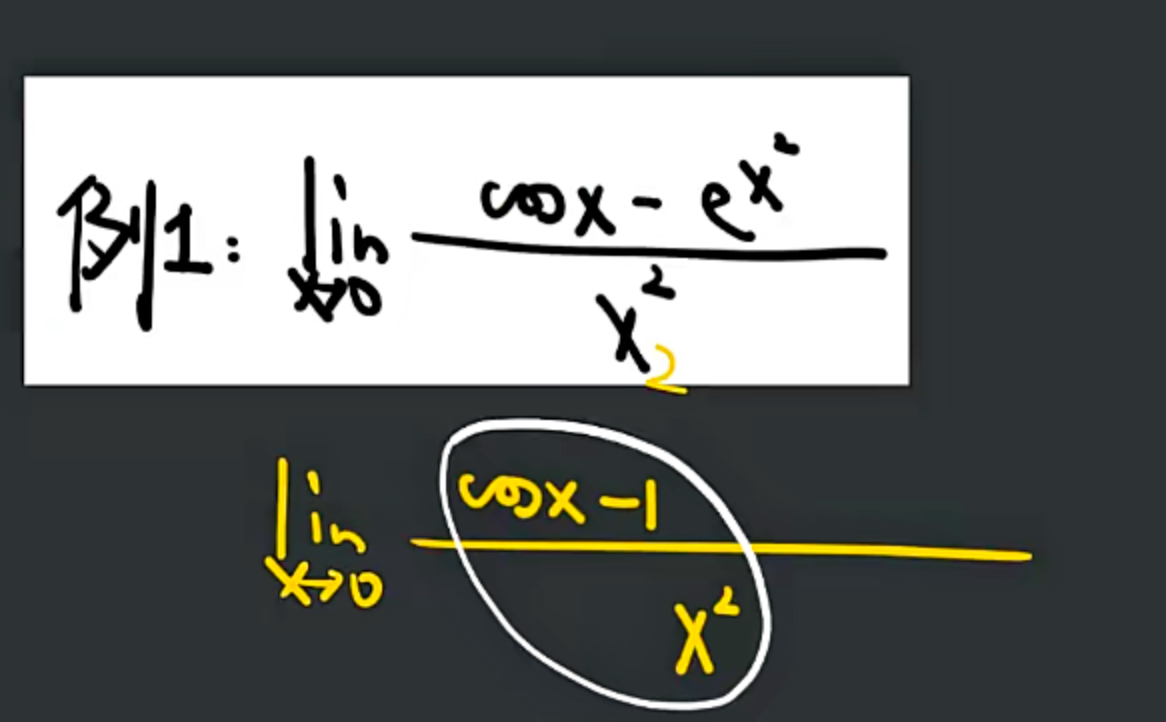 例1: lim x→0 (cosx - e^x^2) / x^2
2
lim x→0 (cosx - 1) / x^2